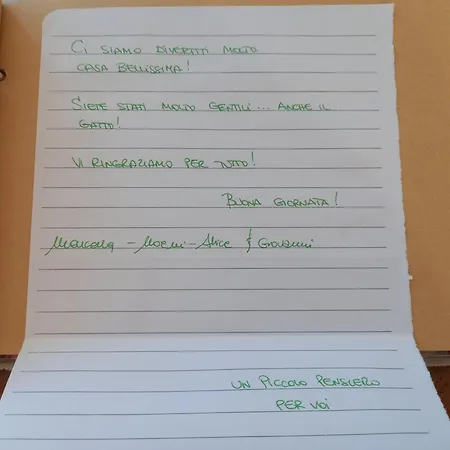 CI SIAMO DIVERTITI MOLTO
CASA BELLISSIMA!
SIETE STATI MOLTO GENTILI... ANCHE IL
GATTO!
VI RINGRAZIAMO PER TUTTO!
BUONA GIORNATA!
- Noemi - Alice & Giovanni
UN PICCOLO PENSIERO
PER VOI